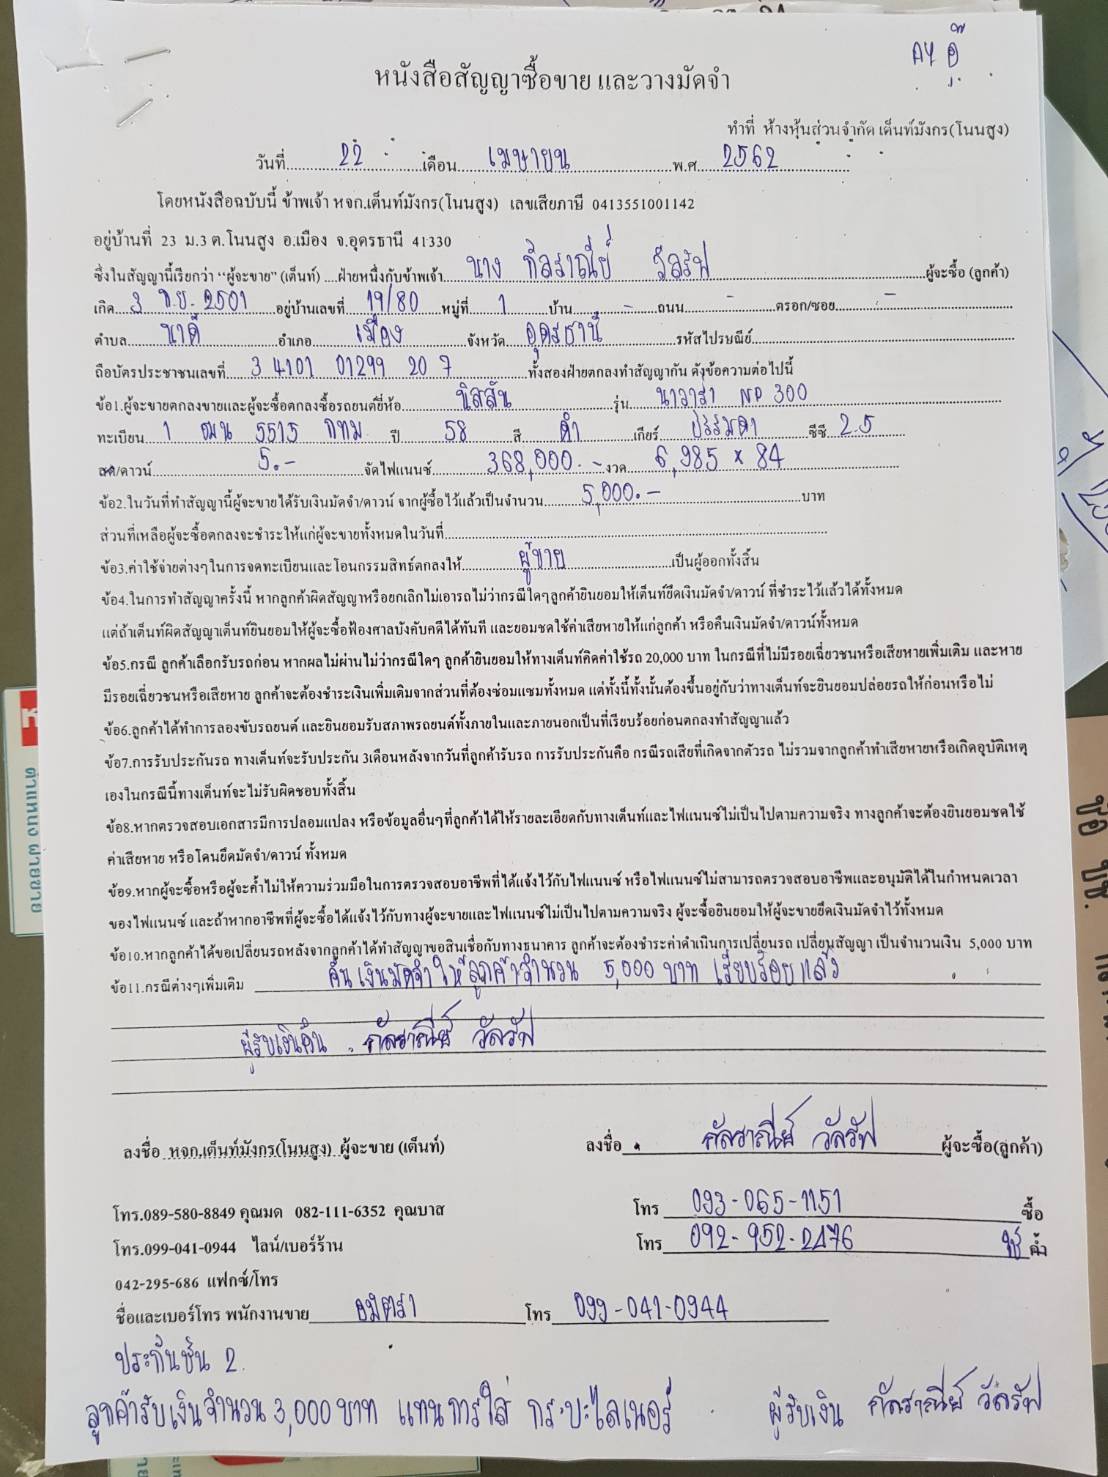 หนังสือสัญญาซื้อขาย และวางมัดจำ
ทำที่ ห้างหุ้นส่วนจำกัด เต็นท์มังกร(โนนสูง)
วันที่ 22 เดือน เมษายน พ.ศ. 2562
โดยหนังสือฉบับนี้ ข้าพเจ้า หจก.เต็นท์มังกร(โนนสูง) เลขเสียภาษี 0413551001142
อยู่บ้านที่ 23 ม.3 ต.โนนสูง อ.เมือง จ.อุดรธานี 41330
ซึ่งในสัญญานี้เรียกว่า "ผู้จะขาย" (เต็นท์) ....ฝ่ายหนึ่งกับข้าพเจ้า นาง ผู้จะซื้อ (ลูกค้า)
เกิด 3 2501 อยู่บ้านเลขที่ 19/80 หมู่ที่ 1 บ้าน - ถนน - ตรอก/ซอย -
ตำบล นาดี อำเภอ เมือง จังหวัด อุดรธานี รหัสไปรษณีย์
ถือบัตรประชาชนเลขที่ 3 4101 01299 20 7 ทั้งสองฝ่ายตกลงทำสัญญากัน ดังข้อความต่อไปนี้
ข้อ1.ผู้จะขายตกลงขายและผู้จะซื้อตกลงซื้อรถยนต์ยี่ห้อ นิสสัน รุ่น นาวาร่า NP 300
ทะเบียน 1 ฒน 5515 กทม ปี 58 สี ดำ เกียร์ ธรรมดา ซีซี 2.5
ลด/ดาวน์ 5.- จัดไฟแนนช์ 368,000.- งวด 6,985 x 84
ข้อ2.ในวันที่ทำสัญญานี้ผู้จะขายได้รับเงินมัดจำ/ดาวน์ จากผู้ซื้อไว้แล้วเป็นจำนวน 5,000.- บาท
ส่วนที่เหลือผู้จะซื้อตกลงจะชำระให้แก่ผู้จะขายทั้งหมดในวันที่
ข้อ3.ค่าใช้จ่ายต่างๆในการจดทะเบียนและโอนกรรมสิทธ์ตกลงให้ ผู้ขาย เป็นผู้ออกทั้งสิ้น
ข้อ4.ในการทำสัญญาครั้งนี้ หากลูกค้าผิดสัญญาหรือยกเลิกไม่เอารถไม่ว่ากรณีใดๆลูกค้ายินยอมให้เต็นท์ยึดเงินมัดจำ/ดาวน์ ที่ชำระไว้แล้วได้ทั้งหมด
แต่ถ้าเต็นท์ผิดสัญญาเต็นท์ยินยอมให้ผู้จะซื้อฟ้องศาลบังคับคดีได้ทันที และยอมชดใช้ค่าเสียหายให้แก่ลูกค้า หรือคืนเงินมัดจำ/ดาวน์ทั้งหมด
ข้อ5.กรณี ลูกค้าเลือกรับรถก่อน หากผลไม่ผ่านไม่ว่ากรณีใดๆ ลูกค้ายินยอมให้ทางเต็นท์คิดค่าใช้รถ 20,000 บาท ในกรณีที่ไม่มีรอยเฉี่ยวชนหรือเสียหายเพิ่มเติม และหาย
มีรอยเฉี่ยวชนหรือเสียหาย ลูกค้าจะต้องชำระเงินเพิ่มเติมจากส่วนที่ต้องซ่อมแซมทั้งหมด แต่ทั้งนี้ทั้งนั้นต้องขึ้นอยู่กับว่าทางเต็นท์จะยินยอมปล่อยรถให้ก่อนหรือไม่
ข้อ6.ลูกค้าได้ทำการลองขับรถยนต์ และยินยอมรับสภาพรถยนต์ทั้งภายในและภายนอกเป็นที่เรียบร้อยก่อนตกลงทำสัญญาแล้ว
ข้อ7.การรับประกันรถ ทางเต็นท์จะรับประกัน 3เดือนหลังจากวันที่ลูกค้ารับรถ การรับประกันคือ กรณีรถเสียที่เกิดจากตัวรถ ไม่รวมจากลูกค้าทำเสียหายหรือเกิดอุบัติเหตุ
เองในกรณีนี้ทางเต็นท์จะไม่รับผิดชอบทั้งสิ้น
ข้อ8.หากตรวจสอบเอกสารมีการปลอมแปลง หรือข้อมูลอื่นๆที่ลูกค้าได้ให้รายละเอียดกับทางเต็นท์และไฟแนนซ์ไม่เป็นไปตามความจริง ทางลูกค้าจะต้องยินยอมชดใช้
ค่าเสียหาย หรือโดนยึดมัดจำ/ดาวน์ ทั้งหมด
ข้อ9.หากผู้จะซื้อหรือผู้จะค้ำไม่ให้ความร่วมมือในการตรวจสอบอาชีพที่ได้แจ้งไว้กับไฟแนนซ์ หรือไฟแนนซ์ไม่สามารถตรวจสอบอาชีพและอนุมัติได้ในกำหนดเวลา
ของไฟแนนซ์ และถ้าหากอาชีพที่ผู้จะซื้อได้แจ้งไว้กับทางผู้จะขายและไฟแนนซ์ไม่เป็นไปตามความจริง ผู้จะซื้อยินยอมให้ผู้จะขายยึดเงินมัดจำไว้ทั้งหมด
ข้อ10.หากลูกค้าได้ขอเปลี่ยนรถหลังจากลูกค้าได้ทำสัญญาขอสินเชื่อกับทางธนาคาร ลูกค้าจะต้องชำระค่าดำเนินการเปลี่ยนรถ เปลี่ยนสัญญา เป็นจำนวนเงิน 5,000 บาท
ข้อ11.กรณีต่างๆเพิ่มเติม คืนเงินมัดจำให้ลูกค้าจำนวน 5,000 บาท เรียบร้อยแล้ว
ผู้รับเงินคืน กัลราณีย์ วัลรัฟ
ลงชื่อ หจก.เต็นท์มังกร(โนนสูง) ผู้จะขาย (เต็นท์) ลงชื่อ กัลราณีย์ วัลรัฟ ผู้จะซื้อ(ลูกค้า)
โทร.089-580-8849 คุณมด 082-111-6352 คุณบาส โทร 093-065-1151 ซื้อ
โทร.099-041-0944 ไลน์/เบอร์ร้าน โทร 092-952-2476 ค้ำ
042-295-686 แฟกซ์/โทร
ชื่อและเบอร์โทร พนักงานขาย ธมิตรา โทร 099-041-0944
ประกันชั้น 2
ลูกค้ารับเงินจำนวน 3,000 บาท แทนการใส่ กระบะไลเนอร์ ผู้รับเงิน กัลราณีย์ วัลรัฟ
ตำแหน่ง ฝ่ายขาย